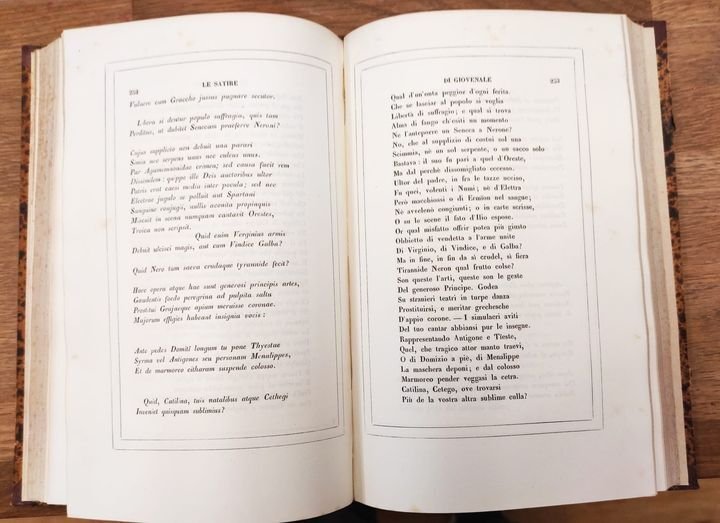 252
LE SATIRE
Vulnere cum Graccho jussus pugnare secutor,
Libera si dentur populo suffragia, quis tam
Perditus, ut dubitet Senecam praeferre Neroni?
Cujus supplicio non debuit una parari
Simia nec serpens unus nec culeus unus.
Par Agamemnonidae crimen; sed causa facit rem
Dissimilem: quippe ille Deis auctoribus ultor
Patris erat caesi media inter pocula; sed nec
Electrae jugulo se polluit aut Spartani
Sanguine conjugii, nullis aconita propinquis
Miscuit in scena numquam cantavit Orestes,
Troica non scripsit.
Quid enim Verginius armis
Debuit ulcisci magis, aut cum Vindice Galba?
Quid Nero tam saeva crudaque tyrannide fecit?
Haec opera atque hae sunt generosi principis artes,
Gaudentis foedo peregrina ad pulpita saltu
Prostitui Grajaeque apium meruisse coronae.
Majorum effigies habeant insignia vocis:
Ante pedes Domitî longum tu pone Thyestae
Syrma vel Antigones seu personam Menalippes,
Et de marmoreo citharam suspende colosso.
Quid, Catilina, tuis natalibus atque Cethegi
Inveniet quisquam sublimius?
DI GIOVENALE
253
Qual d'un'onta peggior d'ogni ferita.
Che se lasciar al popolo si voglia
Libertà di suffragio; e qual si trova
Alma di fango ch'esiti un momento
Ne l'anteporre un Seneca a Nerone?
No, che al supplizio di costui nol una
Scimmia, nè un sol serpente, o un sacco solo
Bastava: il suo fu pari a quel d'Oreste,
Ma dal perchè dissomigliato eccesso.
Ultor del padre, in fra le tazze ucciso,
Fu quei, volenti i Numi; nè d'Elettra
Però macchiossi o di Ermion nel sangue;
Nè avvelenò congiunti; o in carte scrisse,
O su le scene il fato d'Ilio espose.
Or qual misfatto offrir potea più giusto
Obbietto di vendetta a l'arme unite
Di Virginio, di Vindice, e di Galba?
Ma in fine, in fin da sì crudel, sì fiera
Tirannide Neron qual frutto colse?
Son queste l'arti, queste son le geste
Del generoso Principe. Godea
Su stranieri teatri in turpe danza
Prostituirsi, e meritar grechesche
D'appio corone. — I simulacri aviti
Del tuo cantar abbiansi pur le insegne.
Rappresentando Antigone e Tieste,
Quel, che tragico attor manto traevi,
O di Domizio a piè, di Menalippe
La maschera deponi; e dal colosso
Marmoreo pender veggasi la cetra.
Catilina, Cetego, ove trovarsi
Più de la vostra altra sublime culla?